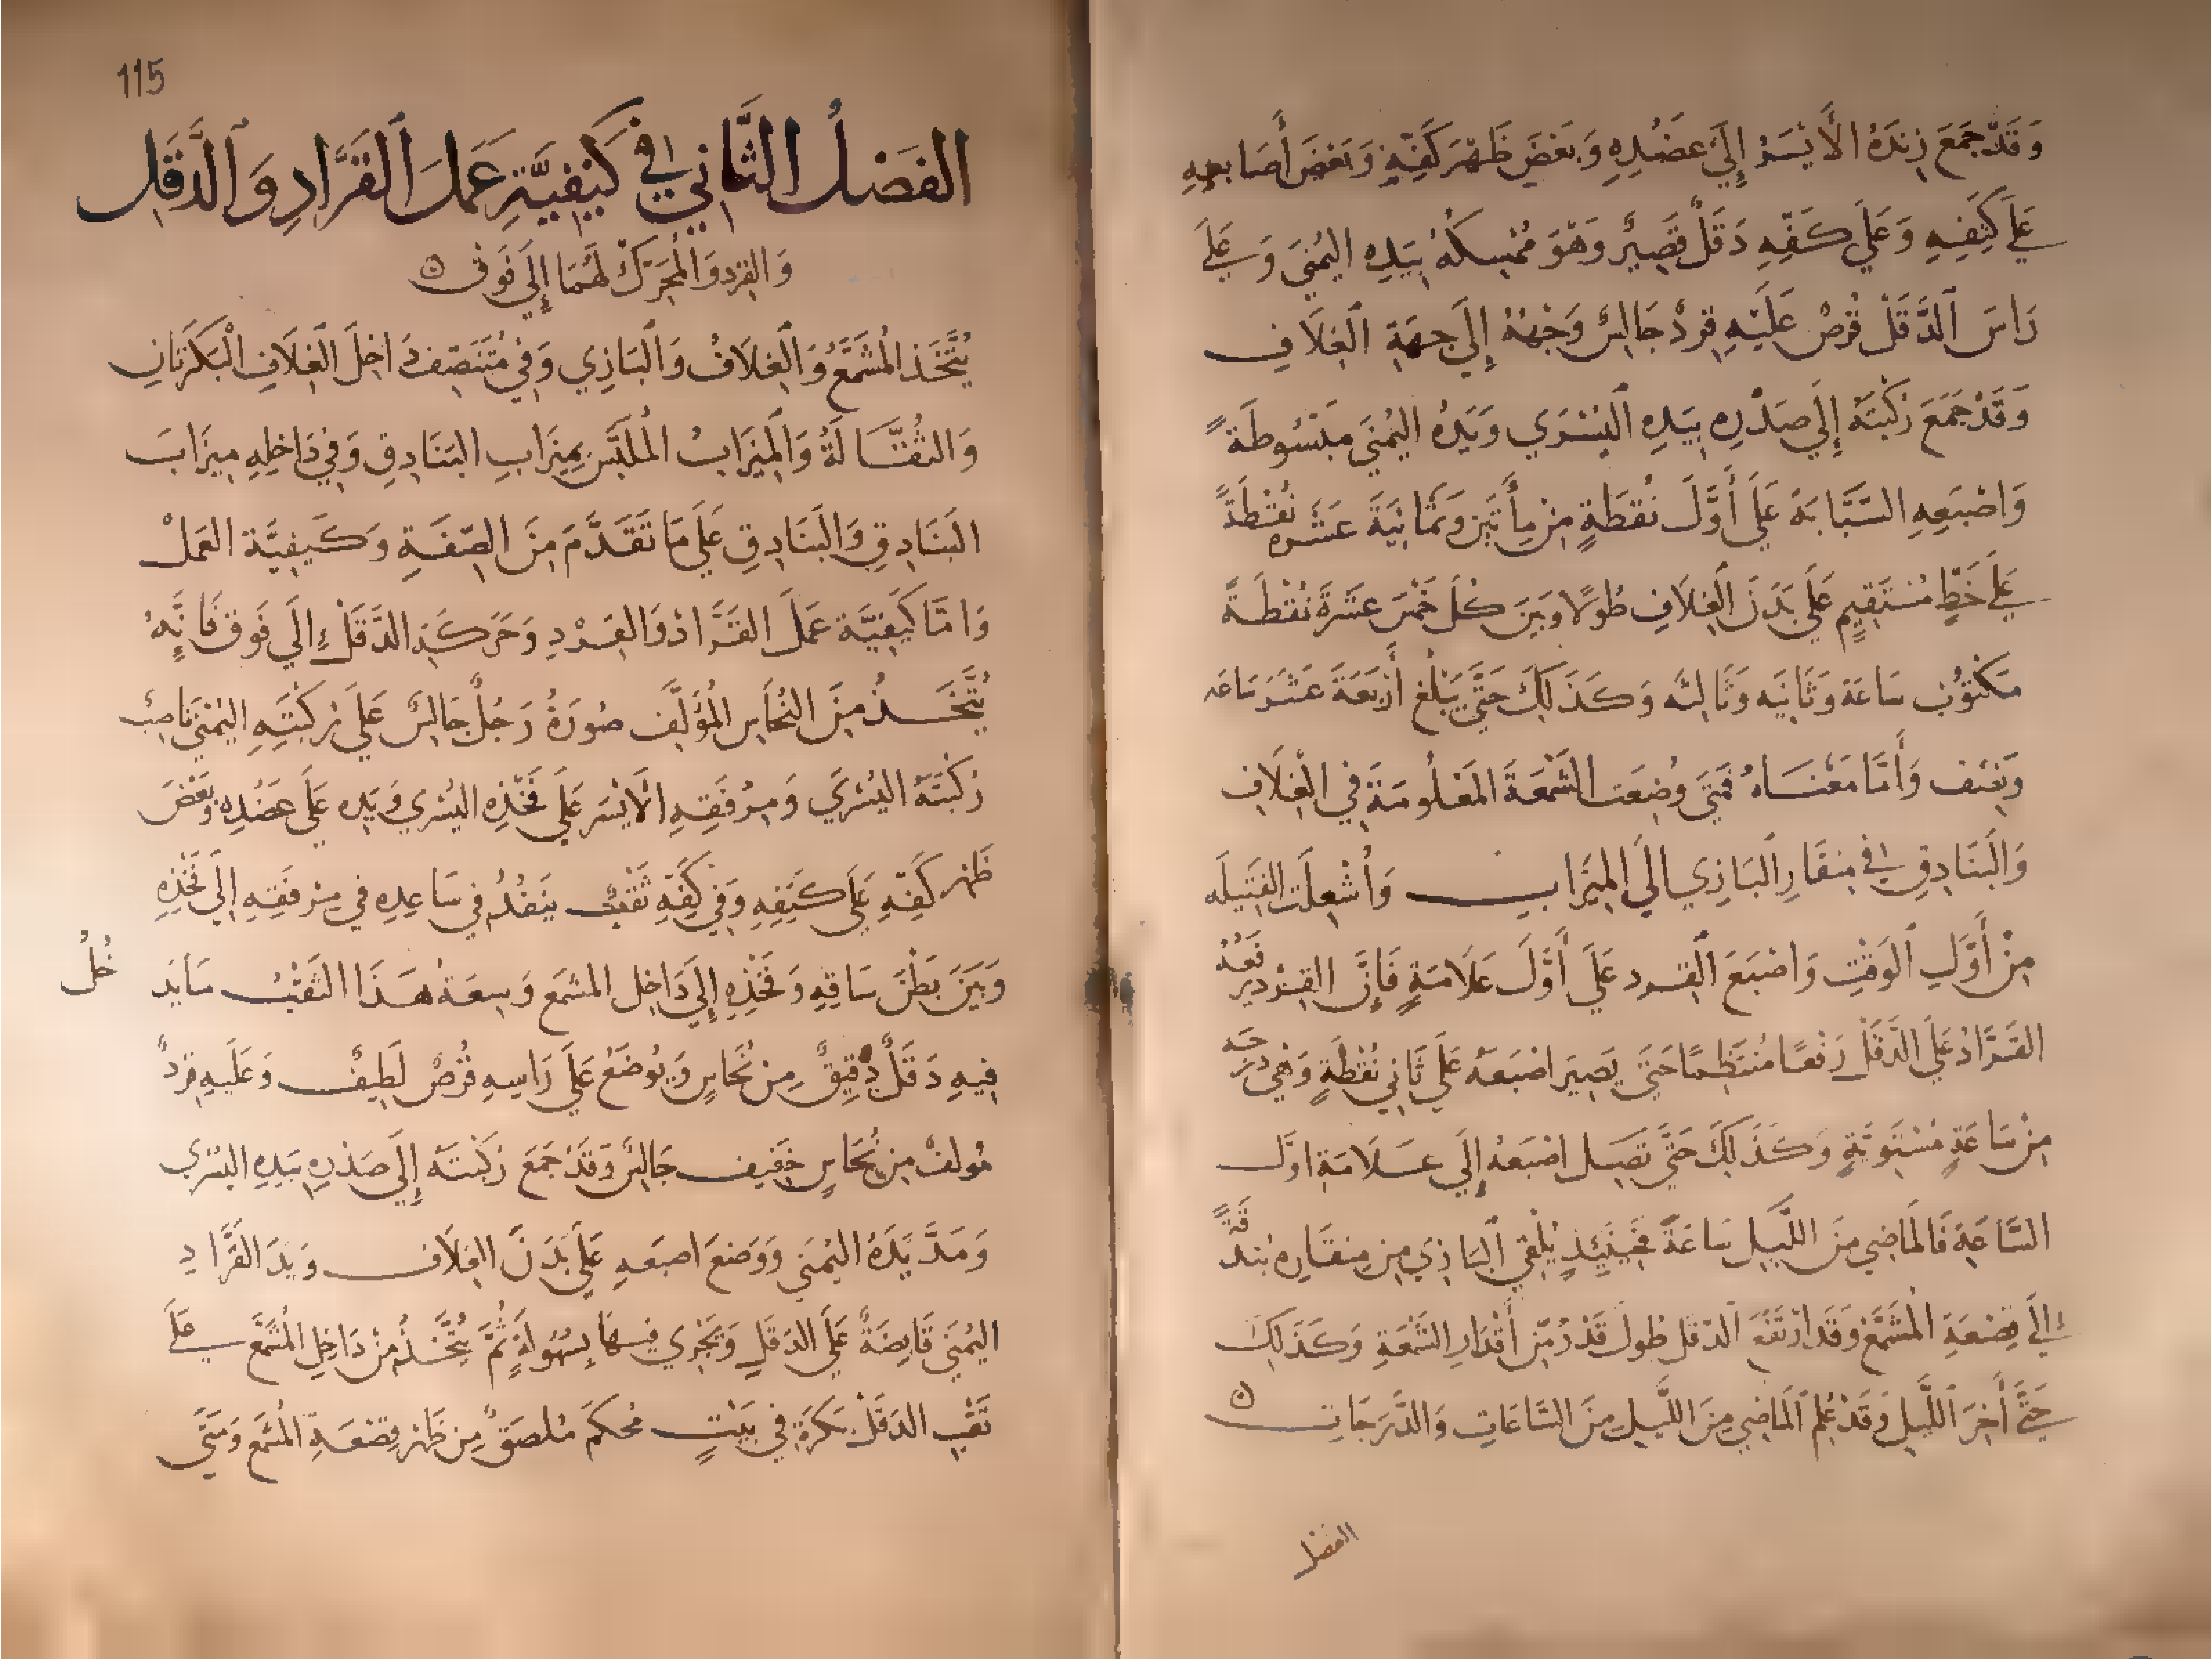 وَقَدْ جَمَعَ زَندَهُ الأَيْسَرَ إِلَى عَضُدِهِ وَبَعْضَ ظَهْرَ كَفِّهِ وَبَعْضَ أَصَابِعِهِ
عَلَى كَتِفِهِ وَعَلَى كَفِّهِ دَقَلٌ قَصِيرٌ وَهُوَ مُمْسِكُهُ بِيَدِهِ اليُمْنَى وَعَلَى
رَاسَ الدَّقَلْ قُرصٌ عَلَيْهِ قِردٌ جَالِسٌ وَجْهُهُ إِلَى جِهَةِ الغِلَافِ
وَقَدْ جَمَعَ رُكْبَتَهُ إِلَى صَدْرِهِ بِيَدِهِ اليُسْرَى وَيَدُهُ اليُمْنَى مَبْسُوطَةً
وَاصْبَعِهِ السَّبَّابَةُ عَلَى أَوَّلَ نُقطَةٍ مِن مِأَتَينِ وَثَمَانِيَةَ عَشَرَه نُقْطَةً
عَلَى خَطٍّ مُسْتَقِيمٍ عَلَى بَدَنَ الغِلَافِ طُولًا وَبَيْنَ كُلَ خَمْسَ عَشَرَةَ نُقْطَةً
مَكْتُوبٌ سَاعَة وَثَانِيَه وَثَالِثَه وَكَذَلِكَ حَتَّى يَبْلُغ أَرْبَعَةَ عَشَرَ سَاعَه
وَنِصْف وَأَمَّا مَعْنَاهُ فَمَتَى وُضِعَت الشَّمْعَةَ المَعْلُومَةَ فِي الغِلَافِ
وَالبَنَادِقِ فِي مِنقَارِ البَازِي إِلَى المِيزَابِ وَأُشْعِلَت الفَتِيلَه
مِنْ أَوَّلِ الوَقْتِ وَاصْبَعَ القِرد عَلَى أَوَّلَ عَلَامَةٍ فَإِنَّ القِرْد يَرْفَعُهُ
القَرَّادُ عَلَى الدَّقَلْ رَفْعًا مُنتَظِمًا حَتَى يَصِيرَ اصْبَعَهُ عَلَى ثَانِي نُقْطَةٍ وَهِيَ دَرَجَه
مِنْ سَاعَةٍ مُسْتَوِيَةٍ وَكَذَلِكَ حَتَّى تَصِل اصْبَعُهُ إِلَى عَلَامَةِ اوَّل
السَّاعَةِ فَالمَاضِي مِنَ اللَّيلِ سَاعَةً فَحِينَئِذٍ يُلْقِي البَازِي مِن مِنقَارِهِ بُندُقَةً
إِلَى قِصْعَةِ المُشَمَّع وَقَد ارْتَفَعَ الدقل طُولَ قَدْرٍ مِنْ أَقْدَارِ الشَّمْعَةِ وَكَذَلِكَ
حَتَّى أَخِرَ اللَّيلِ وَقَدْ عُلِمَ المَاضِي مِنَ اللَّيلِ مِنَ السَّاعَاتِ وَالدَّرَجَاتِ ۞
الفصل
115
الفَصْلُ الثَّانِي فِي كَيْفِيَّةِ عَمَلَ القَرَّادِ وَالدَّقَلِ
وَالقِردِ وَالمُحَرِّكْ لَهُمَا إِلَى فَوْقِ ۞
يُتَّخَذ المُشَمَّعُ وَالغِلَافُ وَالبَازِي وَفِي مُنْتَصِفِ دَاخِلَ الغِلَافِ البَكَرَتَانِ
وَالثُقَّالَةُ وَالمِيزَابُ المُلَبَّس بِمِيزَابِ البَنَادِقِ وَفِي دَاخِلِهِ مِيزَابَ
البَنَادِقِ وَالبَنَادِقِ عَلَى مَا تَقَدَّمَ مِنَ الصِّفَةِ وَكَيفِيَّة العَمَلْ
وَامَّا كَيفِيَّة عَمَلَ القَرَّادْ وَالقِرْدِ وَحَرَكَةِ الدَّقَلْ إِلَى فَوق فَانَّهُ
يُتَّخَذُ مِنَ النُحَاسِ المُؤَلَّفِ صُورَةُ رَجُلٌ جَالِسٌ عَلَى رُكْبَتِهِ اليُمْنَى نَاصِبٌ
رُكْبَتَهُ اليُسْرَى وَمِرْفَقِهِ الأَيْسَر عَلَى فَخْذِهِ اليُسْرِي وَيَدِهِ عَلَى عَضُدِهِ وَبَعْضَ
ظَهْرِ كَفِّهِ عَلَى كَتِفِهِ وَفِي كَفِّهِ ثَقْبٌ يَنفُذُ فِي سَاعِدِهِ فِي مِرْفَقِهِ إِلَى فَخْذِهِ
وَبَيْنَ بَطْنَ سَاقِهِ وَفَخْذِهِ إِلَى دَاخِل المشمع وَسِعَةُ هَذَا الثَقْبُ مَا يَدخُلُ
فِيهِ دَقَلٌ دَقِيقٌ مِن نُحَاسٍ وَيُوضَعُ عَلَى رَاسِهِ قُرصٌ لَطِيفٌ وَعَلَيهِ قِردٌ
مُولفٌ مِن نُحَاسٍ خَفِيف جَالِسٌ وَقَدْ جَمَعَ رُكْبَتَهُ إِلَى صَدْرِهِ بِيَدِهِ اليُسْرَى
وَمَدَّ يَدَهُ اليُمْنَى وَوَضَعَ اصبَعِهِ عَلَى بَدَنَ الغِلَاف وَيَدَ القَرَّادِ
اليُمْنَى قَابِضَةٌ عَلَى الدَقَلِ وَيَجْرِي فِيهَا بِسُهُولَةٍ ثُمَّ يُتَّخَذُ مِنْ دَاخِلِ المُشَمَّع عَلَى
ثَقْبِ الدَقَلْ بَكَرَةً فِي بَيْتٍ مُحكَم مُلصَقٌ مِن ظَهْرِ قِصْعَةِ المُشَمَّع وَمَتَى